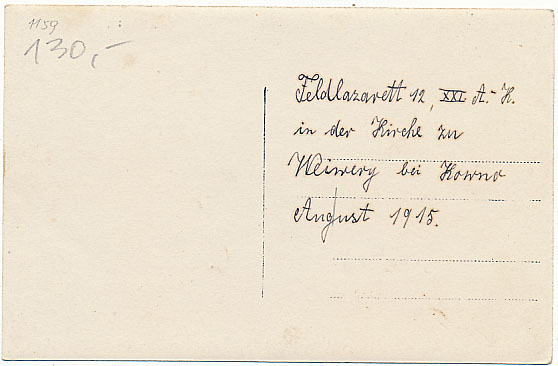 1159
130,-
Feldlazarett 12, XXI A.-K.
in der Kirche zu
Weiwery bei Kowno
August 1915.